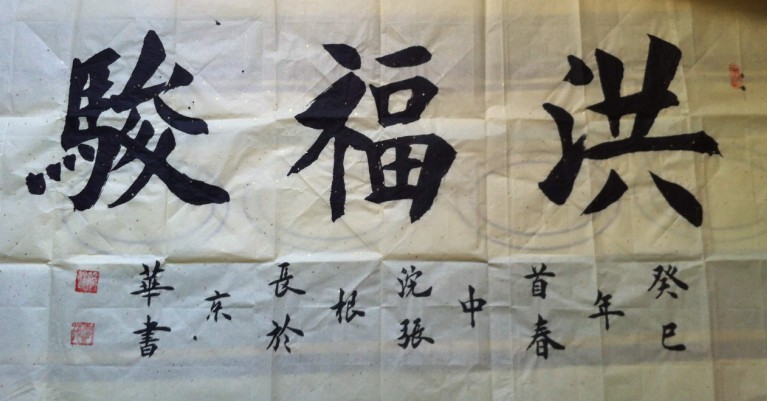 洪福駿
癸巳年首春中浣張根長於京華書